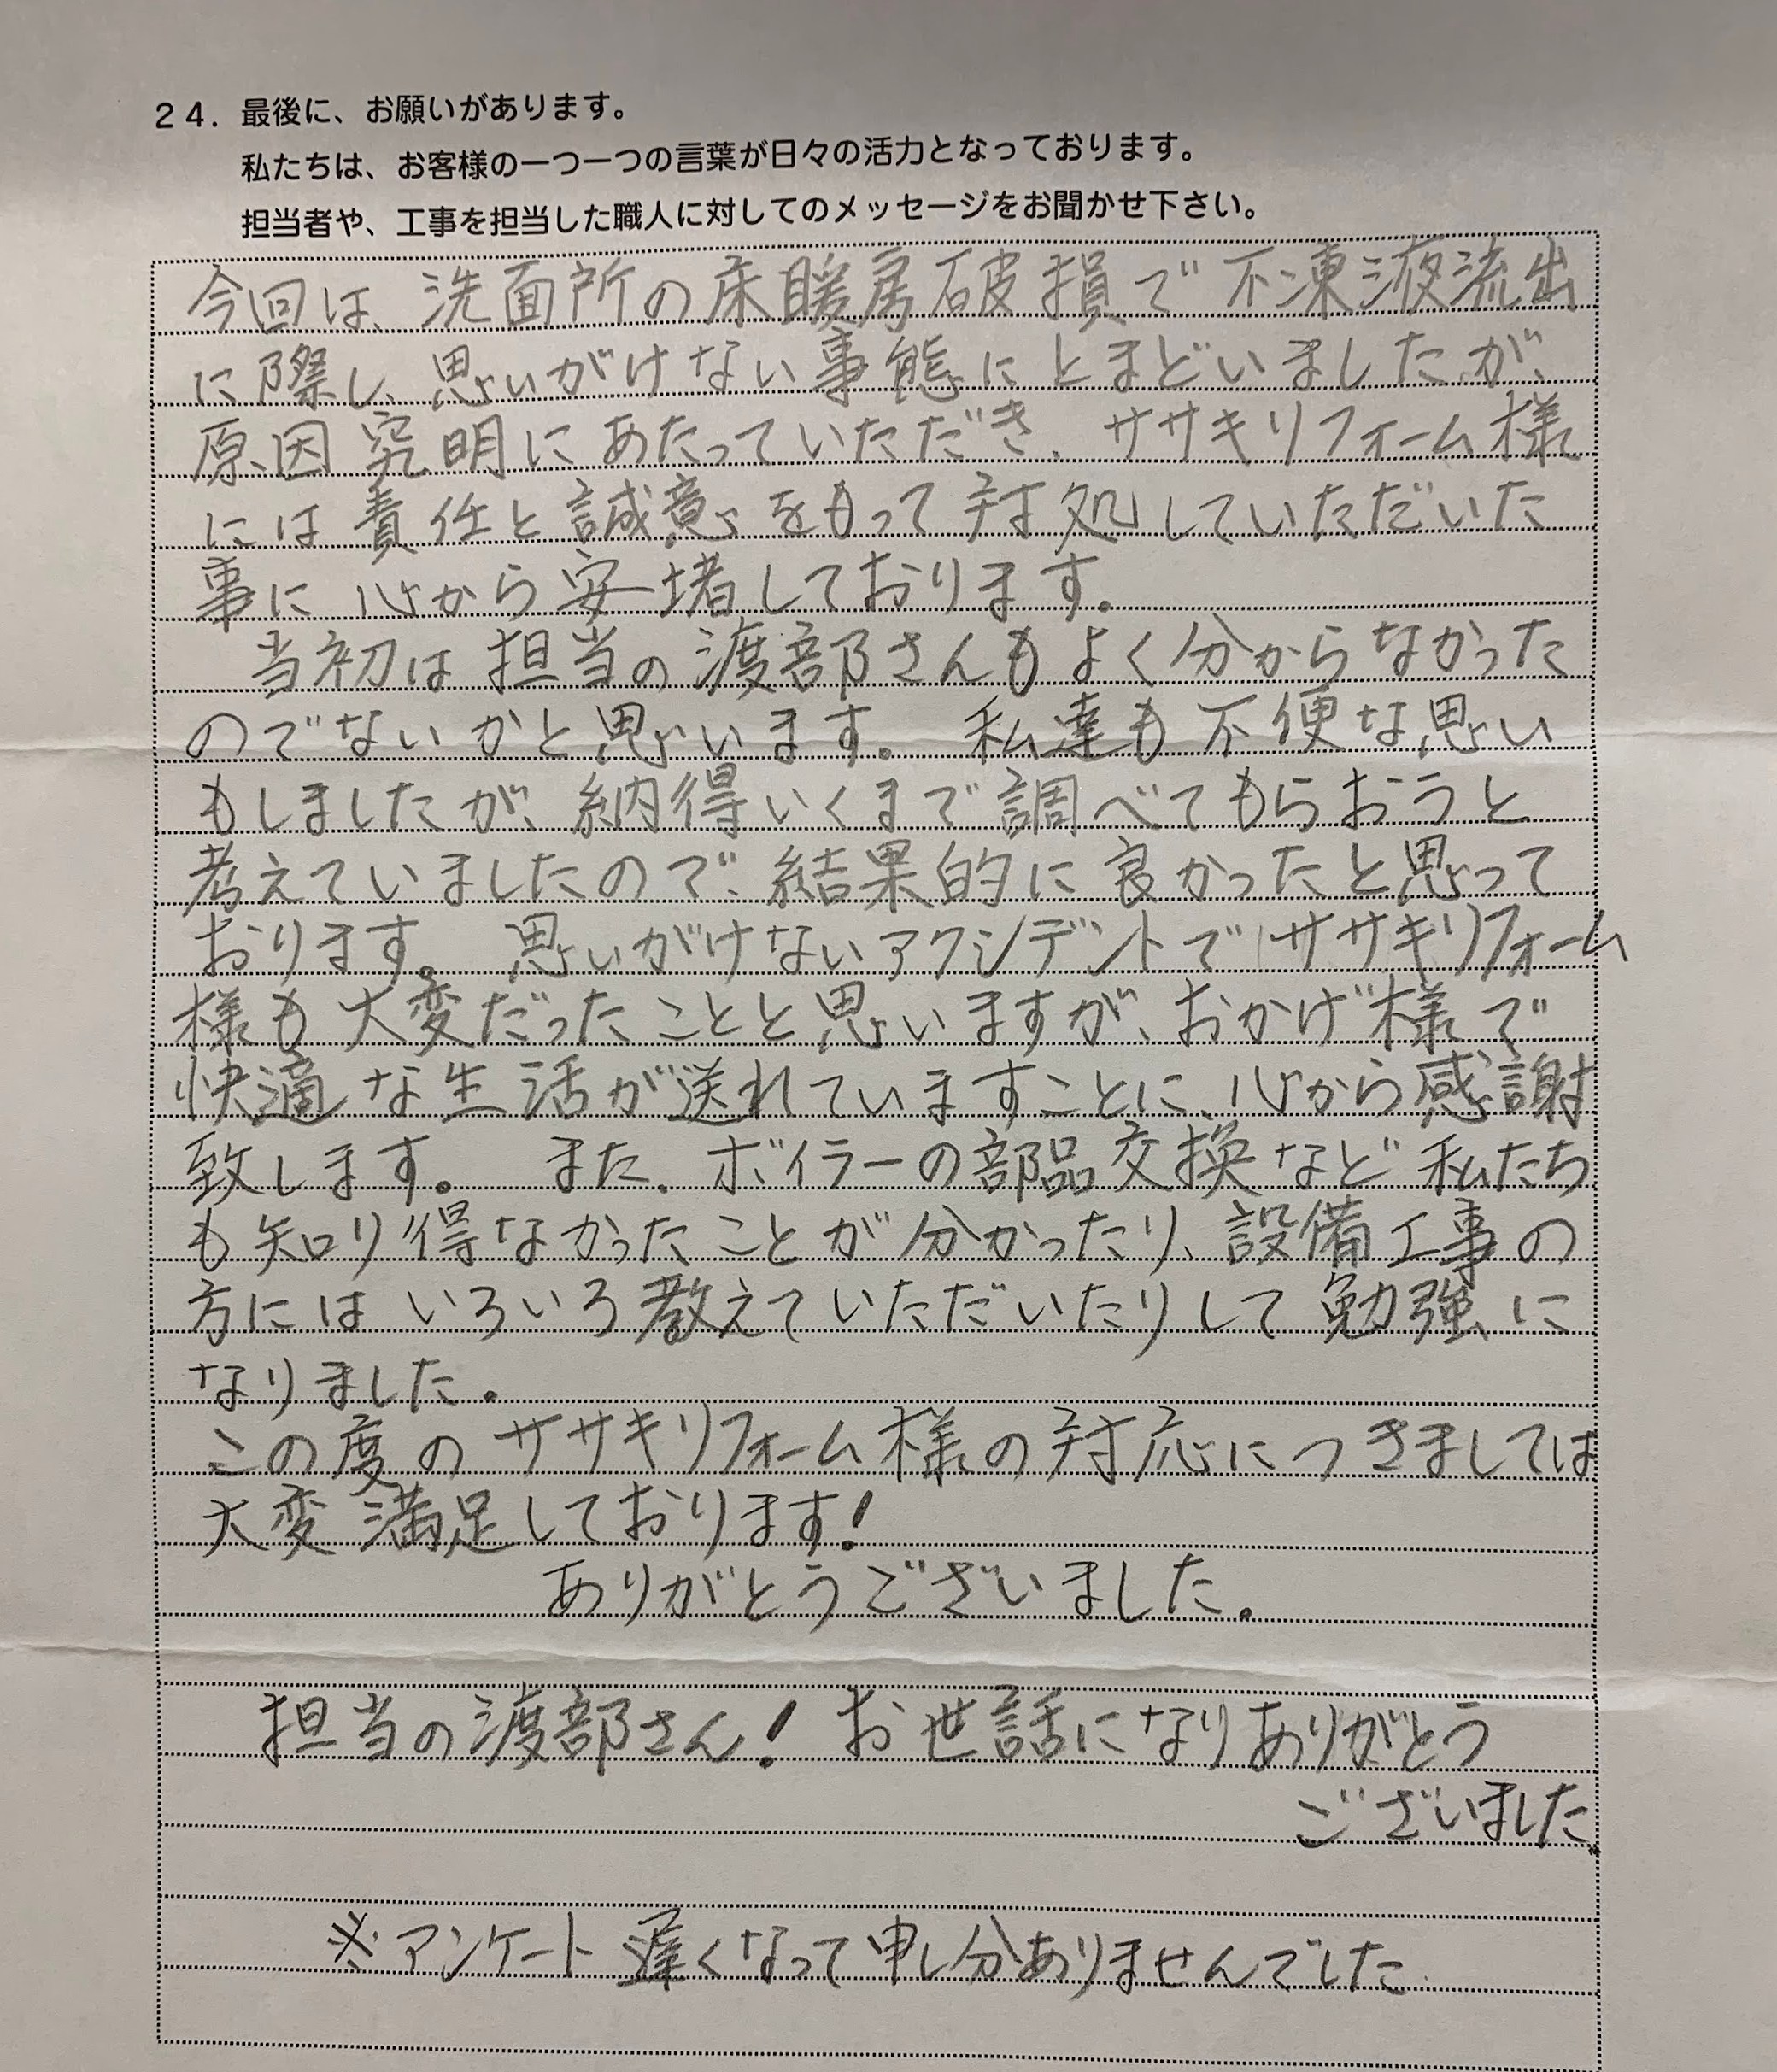 24. 最後に、お願いがあります。
私たちは、お客様の一つ一つの言葉が日々の活力となっております。
担当者や、工事を担当した職人に対してのメッセージをお聞かせ下さい。
今回は、洗面所の床暖房破損で不凍液流出
に際し、思いがけない事態にとまどいましたが、
原因究明にあたっていただき、ササキリフォーム様
には責任と誠意をもって対処していただいた
事に心から安堵しております。
当初は担当の渡部さんもよく分からなかった
のでないかと思います。私達も不便な思い
もしましたが、納得いくまで調べてもらおうと
考えていましたので、結果的に良かったと思って
おります。思いがけないアクシデントでササキリフォーム
様も大変だったことと思いますが、おかげ様で
快適な生活が送れていますことに、心から感謝
致します。また、ボイラーの部品交換など私たち
も知り得なかったことが分かったり、設備工事の
方にはいろいろ教えていただいたりして勉強に
なりました。
この度のササキリフォーム様の対応につきましては
大変満足しております!
ありがとうございました。
担当の渡部さん! お世話になりありがとう
ございました
※アンケート遅くなって申し分ありませんでした